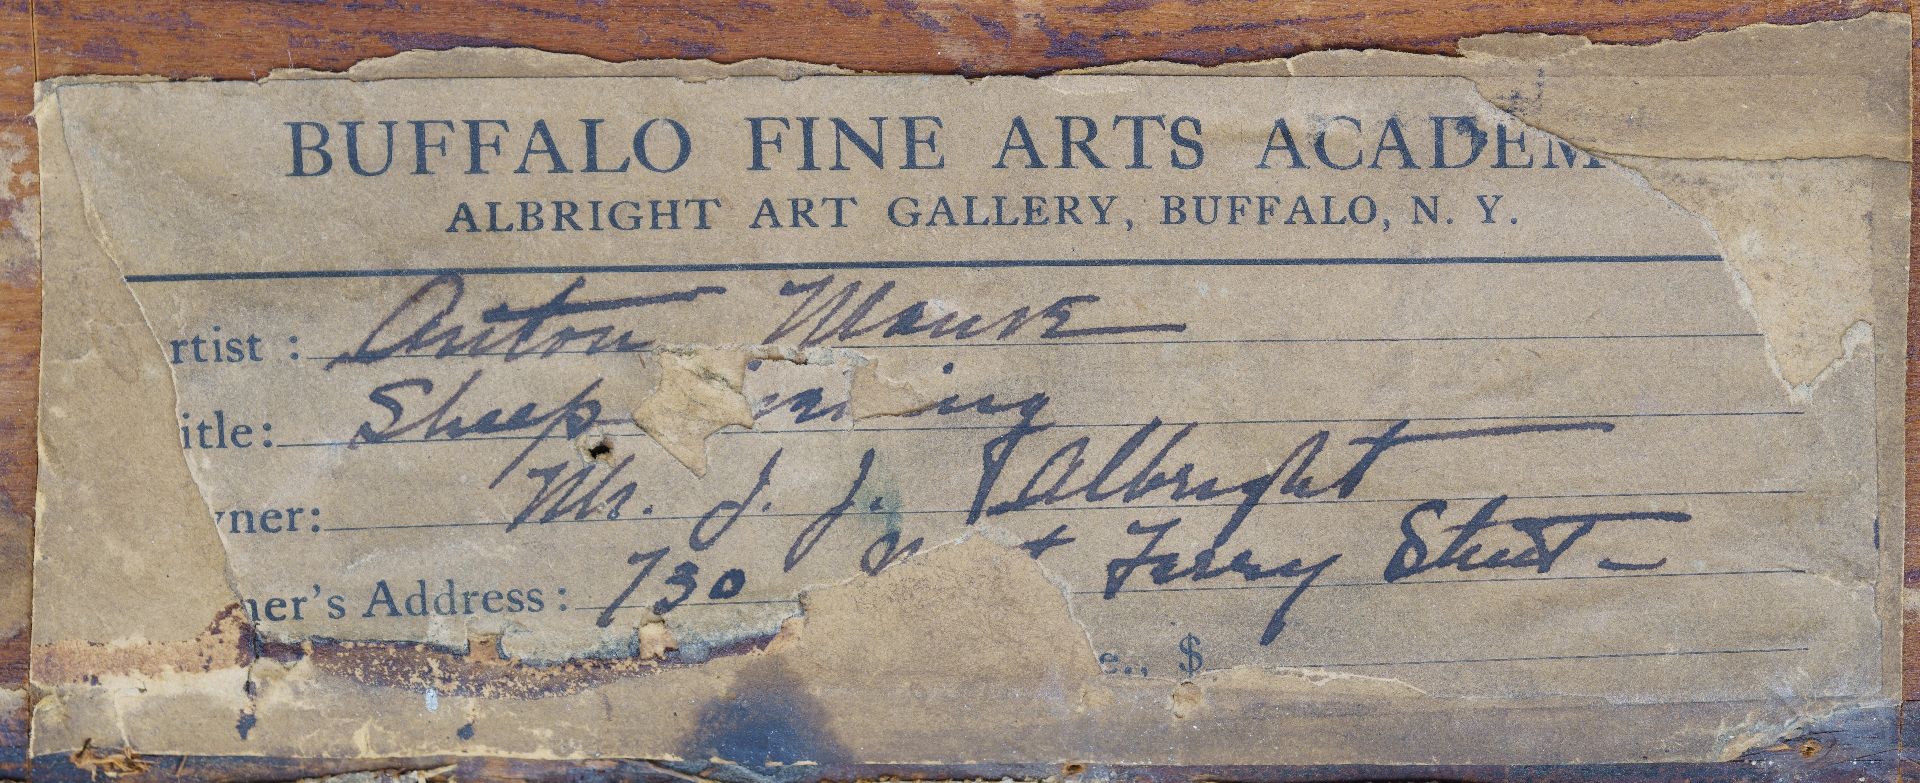 BUFFALO FINE ARTS ACADEM
ALBRIGHT ART GALLERY, BUFFALO, N. Y.
rtist: Anton Mauve
itle: Sheep
wner: Mr. J. J. Albright
ner's Address: 730 Ferry Street -
e., $